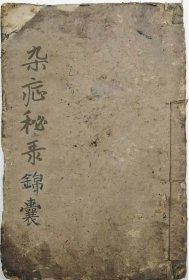 杂症秘录錦囊